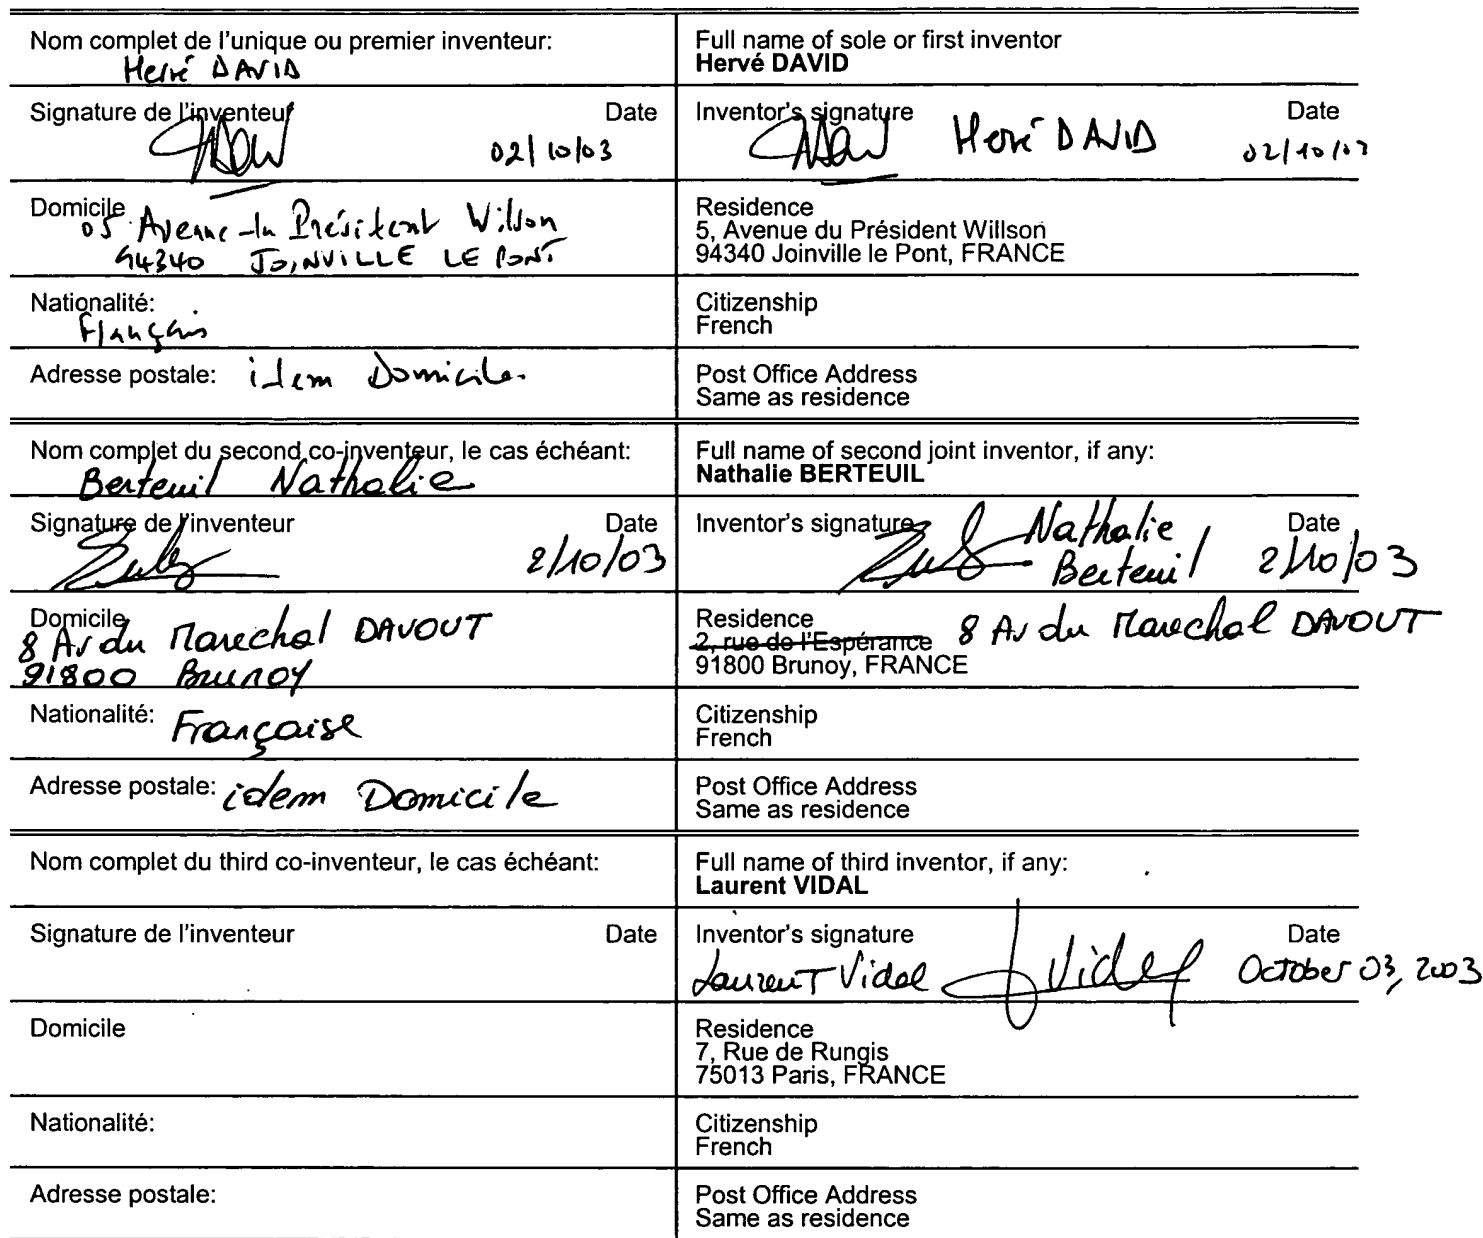 Nom complet de l'unique ou premier inventeur:
Hervé DAVID
Full name of sole or first inventor
Hervé DAVID
Signature de l'inventeur Date
02/10/03
Inventor's signature Date
Hervé DAVID 02/10/03
Domicile
05 Avenue du Président Wilson
94340 JOINVILLE LE PONT
Residence
5, Avenue du Président Willson
94340 Joinville le Pont, FRANCE
Nationalité:
Français
Citizenship
French
Adresse postale: idem Domicile.
Post Office Address
Same as residence
Nom complet du second co-inventeur, le cas échéant:
Berteuil Nathalie
Full name of second joint inventor, if any:
Nathalie BERTEUIL
Signature de l'inventeur Date
2/10/03
Inventor's signature Date
Nathalie
Berteuil 2/10/03
Domicile
8 Av du Marechal DAVOUT
91800 Brunoy
Residence
2, rue de l'Espérance 8 Av du Marechal DAVOUT
91800 Brunoy, FRANCE
Nationalité: Française
Citizenship
French
Adresse postale: idem Domicile
Post Office Address
Same as residence
Nom complet du third co-inventeur, le cas échéant:
Full name of third inventor, if any:
Laurent VIDAL
Signature de l'inventeur Date
Inventor's signature Date
Laurent Vidal Vidal October 03, 2003
Domicile
Residence
7, Rue de Rungis
75013 Paris, FRANCE
Nationalité:
Citizenship
French
Adresse postale:
Post Office Address
Same as residence